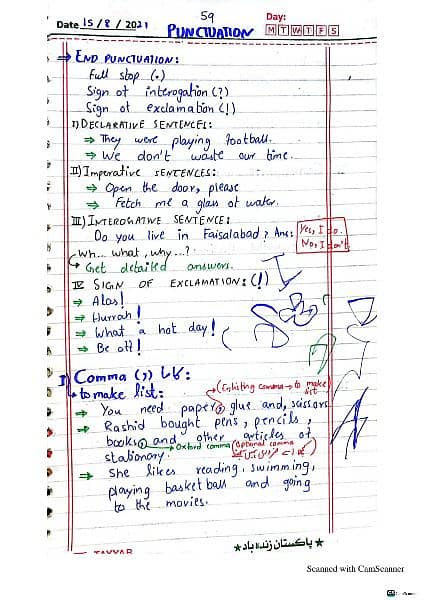 59
Date 15/8/2021
PUNCTUATION
Day:
M T W T F S
⇒ END PUNCTUATION:
Full stop (.)
Sign of interogation (?)
Sign of exclamation (!)
I) DECLARATIVE SENTENCES:
⇒ They were playing football.
⇒ We don't waste our time.
II) Imperative SENTENCES:
⇒ Open the door, please
⇒ Fetch me a glass of water.
III) INTEROGATIVE SENTENCE:
Do you live in Faisalabad? Ans: Yes, I do.
No, I don't.
Wh... what, why...?
Get detailed answers.
IV SIGN OF EXCLAMATION: (!)
⇒ Alas!
⇒ Hurrah!
⇒ What a hot day!
⇒ Be off!
I) Comma (,) کاما:
to make list:
(Enlisting comma → to make list
⇒ You need paper, glue and, scissors
⇒ Rashid bought pens, pencils,
books, and other articles of
Oxford comma (Optional comma
stationary.
⇒ She likes reading, swimming,
playing basketball and going
to the movies.
★ پاکستان زندہ باد ★
TAYYAB
Scanned with CamScanner